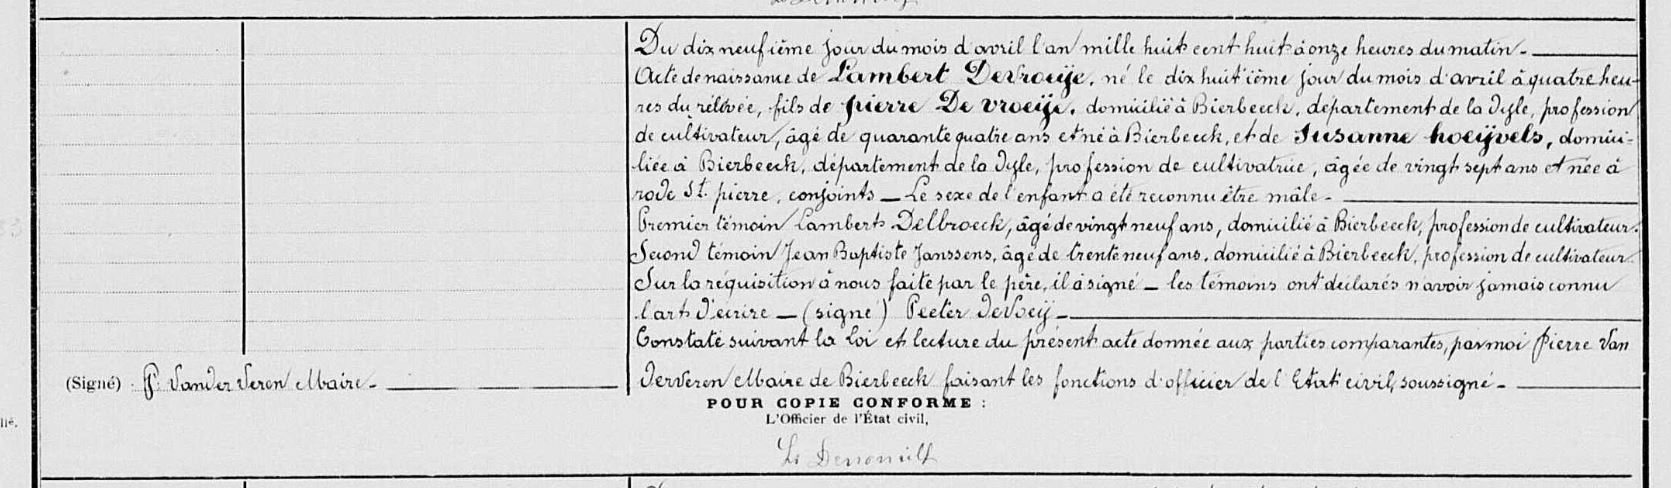 Du dix neufième jour du mois d'avril l'an mille huit cent huit à onze heures du matin -
Acte de naissance de Lambert Devroeije, né le dix huitième jour du mois d'avril à quatre heu-
res du rélévée, fils de pierre De vroeije, domicilié à Bierbeeck, département de la Dyle, profession
de cultivateur, âgé de quarante quatre ans et né à Bierbeeck, et de Susanne hoeijvels, domici-
liée à Bierbeeck, département de la Dyle, profession de cultivatrice, âgée de vingt sept ans et née à
rode St. pierre, conjoints — Le sexe de l'enfant a été reconnu être mâle -
Premier témoin Lambert Delbroeck, âgé de vingt neuf ans, domicilié à Bierbeeck, profession de cultivateur.
Second témoin Jean Baptiste Janssens, âgé de trente neuf ans, domicilié à Bierbeeck, profession de cultivateur.
Sur la réquisition à nous faite par le père, il a signé — les témoins ont déclarés n'avoir jamais connu
l'art d'écrire — (signé) Peeter
Constaté suivant la Loi et lecture du présent acte donnée aux parties comparantes, par moi Pierre Van
(Signé) P. Vander Veren Maire -
derveren Maire de Bierbeeck faisant les fonctions d'officier de l'Etat civil, soussigné -
POUR COPIE CONFORME :
L'Officier de l'État civil,